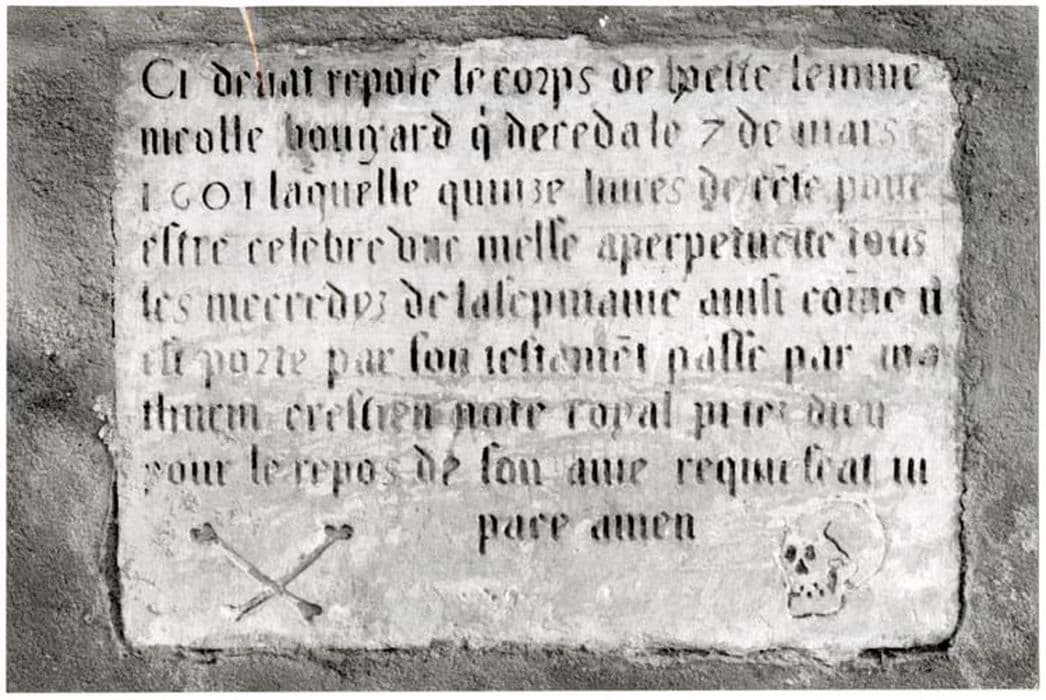 Ci deuāt repose le corps de honeste femme
nicolle bougard q̇ deceda le 7 de mars
1601 laquelle quinze liures de rēte pour
estre celebre vne messe a perpetueite tous
les mecredyz de la sepmaine ainsi cōme il
est porte par son testamēt passe par ma
thurin crestien note royal priez dieu
pour le repos de son ame requiescat in
pace amen